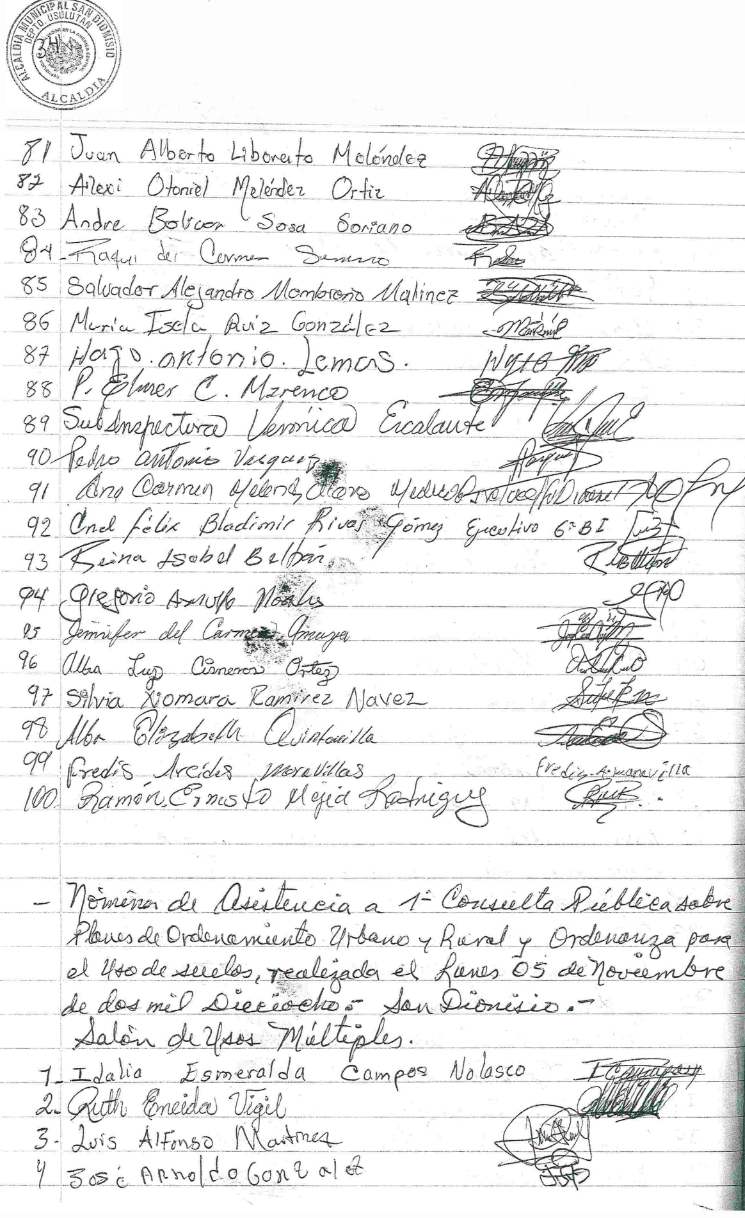 ALCALDIA MUNICIPAL SAN DIONISIO
DEPTO. USULUTAN
34
ALCALDIA
81 Juan Alberto Liborato Meléndez
82 Alexi Otoniel Meléndez Ortiz
83 Andre Bolicar Sosa Soriano
84 del Carmen
85 Salvador Alejandro Membreño Matinez
86 Maria Isela Ruiz González
87 Hugo. antonio. Lemus.
88 P. Elmer C. Marenco
89 SubInspectora Verónica Escalante
90 Pedro antonio Vasquez
91 Ana Carmen
92 Cnel félix Bladimir Rivas Gómez Ejecutivo 6ª BI
93 Reina Isabel Beltrán
94 Gregorio Arnulfo
95 Jennifer del Carmen Amaya
96 Alba Luz Cisneros Ortez
97 Silvia Xiomara Ramirez Navez
98 Alba Elizabeth Quintanilla
99 Fredis Arcides maravillas Fredis.A.maravilla
100. Ramón Ernesto Mejia Rodriguez
- Nómina de Asistencia a 1ª Consulta Pública sobre
Planes de Ordenamiento Urbano y Rural y Ordenanza para
el Uso de suelos, realizada el Lunes 05 de Noviembre
de dos mil Dieciocho.- San Dionisio.-
Salón de Usos Múltiples.
1- Idalia Esmeralda Campos Nolasco
2- Ruth Eneida Vigil
3- Luis Alfonso Martinez
4 José Arnoldo Gonzalez